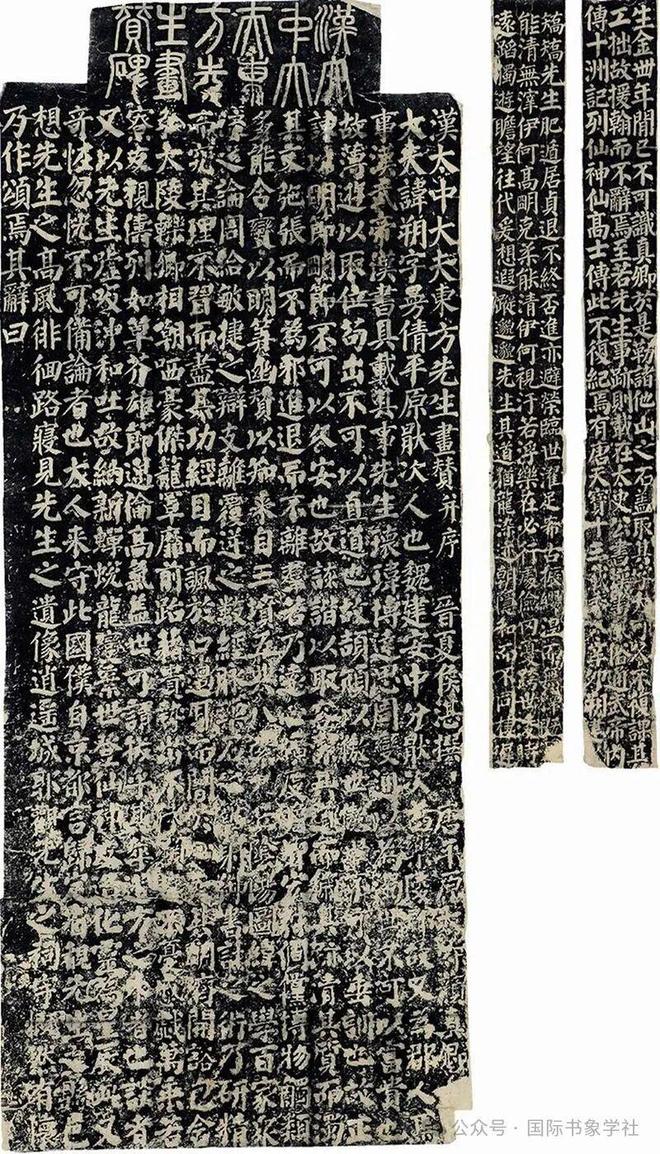 漢太
中大
夫東
方先
生畫
贊碑
漢太中大夫東方先生畫贊并序 晉夏侯湛撰
大夫諱朔字曼倩平原厭次人也魏建安中分厭次以為郡故又為郡人
事漢武帝漢書具載其事先生瓌瑋博達思周變通以為不可以富貴也
故薄遊以取位苟出不可以直道也故頡頏以傲世可以垂訓也故正
諫以明節明節不可以久安也故詼諧以取容而穢其跡清其質而濁
其文弛張而不為邪進退而不離羣若乃遠心曠度倜儻博物觸類
多能合變以明筭幽贊以知來自三墳五典陰陽圖緯之學百家衆
流之論周給敏捷之辯支離覆逆之數經脉書計之術乃研精
而究其理不習而盡其功經目而諷於口過耳而闇明濟開豁包含
弘大陵轢卿相謿哂豪傑籠罩靡前跆藉貴勢出不憂慼戲萬乘若
寮友視儔列如草芥雄節邁倫高氣蓋世可謂拔乎其萃遊方之外者也談者
又以先生噓吸沖和吐故納新蟬蛻龍變棄世登仙神交造化靈為星辰此又
奇怪忽怳不可備論者也大人來守此國僕自京都言歸定省覩先生之縣邑
想先生之高風徘徊路寢見先生之遺像逍遙城郭觀先生之祠宇慨然有懷
乃作頌焉其辭曰
生金丗年間已不可識真卿於是勒諸他山之石蓋取其字大可以久不復課其
工拙故援翰而不辭焉至若先生事跡則載在太史公書漢書風俗通武帝內
傳十洲記列仙神仙高士傳此不復紀焉有唐天寶十三
矯矯先生肥遁居貞退不終否進亦避榮臨世濯足希古振纓涅而無滓
能清無滓伊何高明克柔能清伊何視汙若浮樂在必行處儉罔憂跨世
遠蹈獨遊瞻望往代爰想遐蹤邈邈先生其道猶龍染迹朝隱和而不同棲遲
公众号·国际书象学社